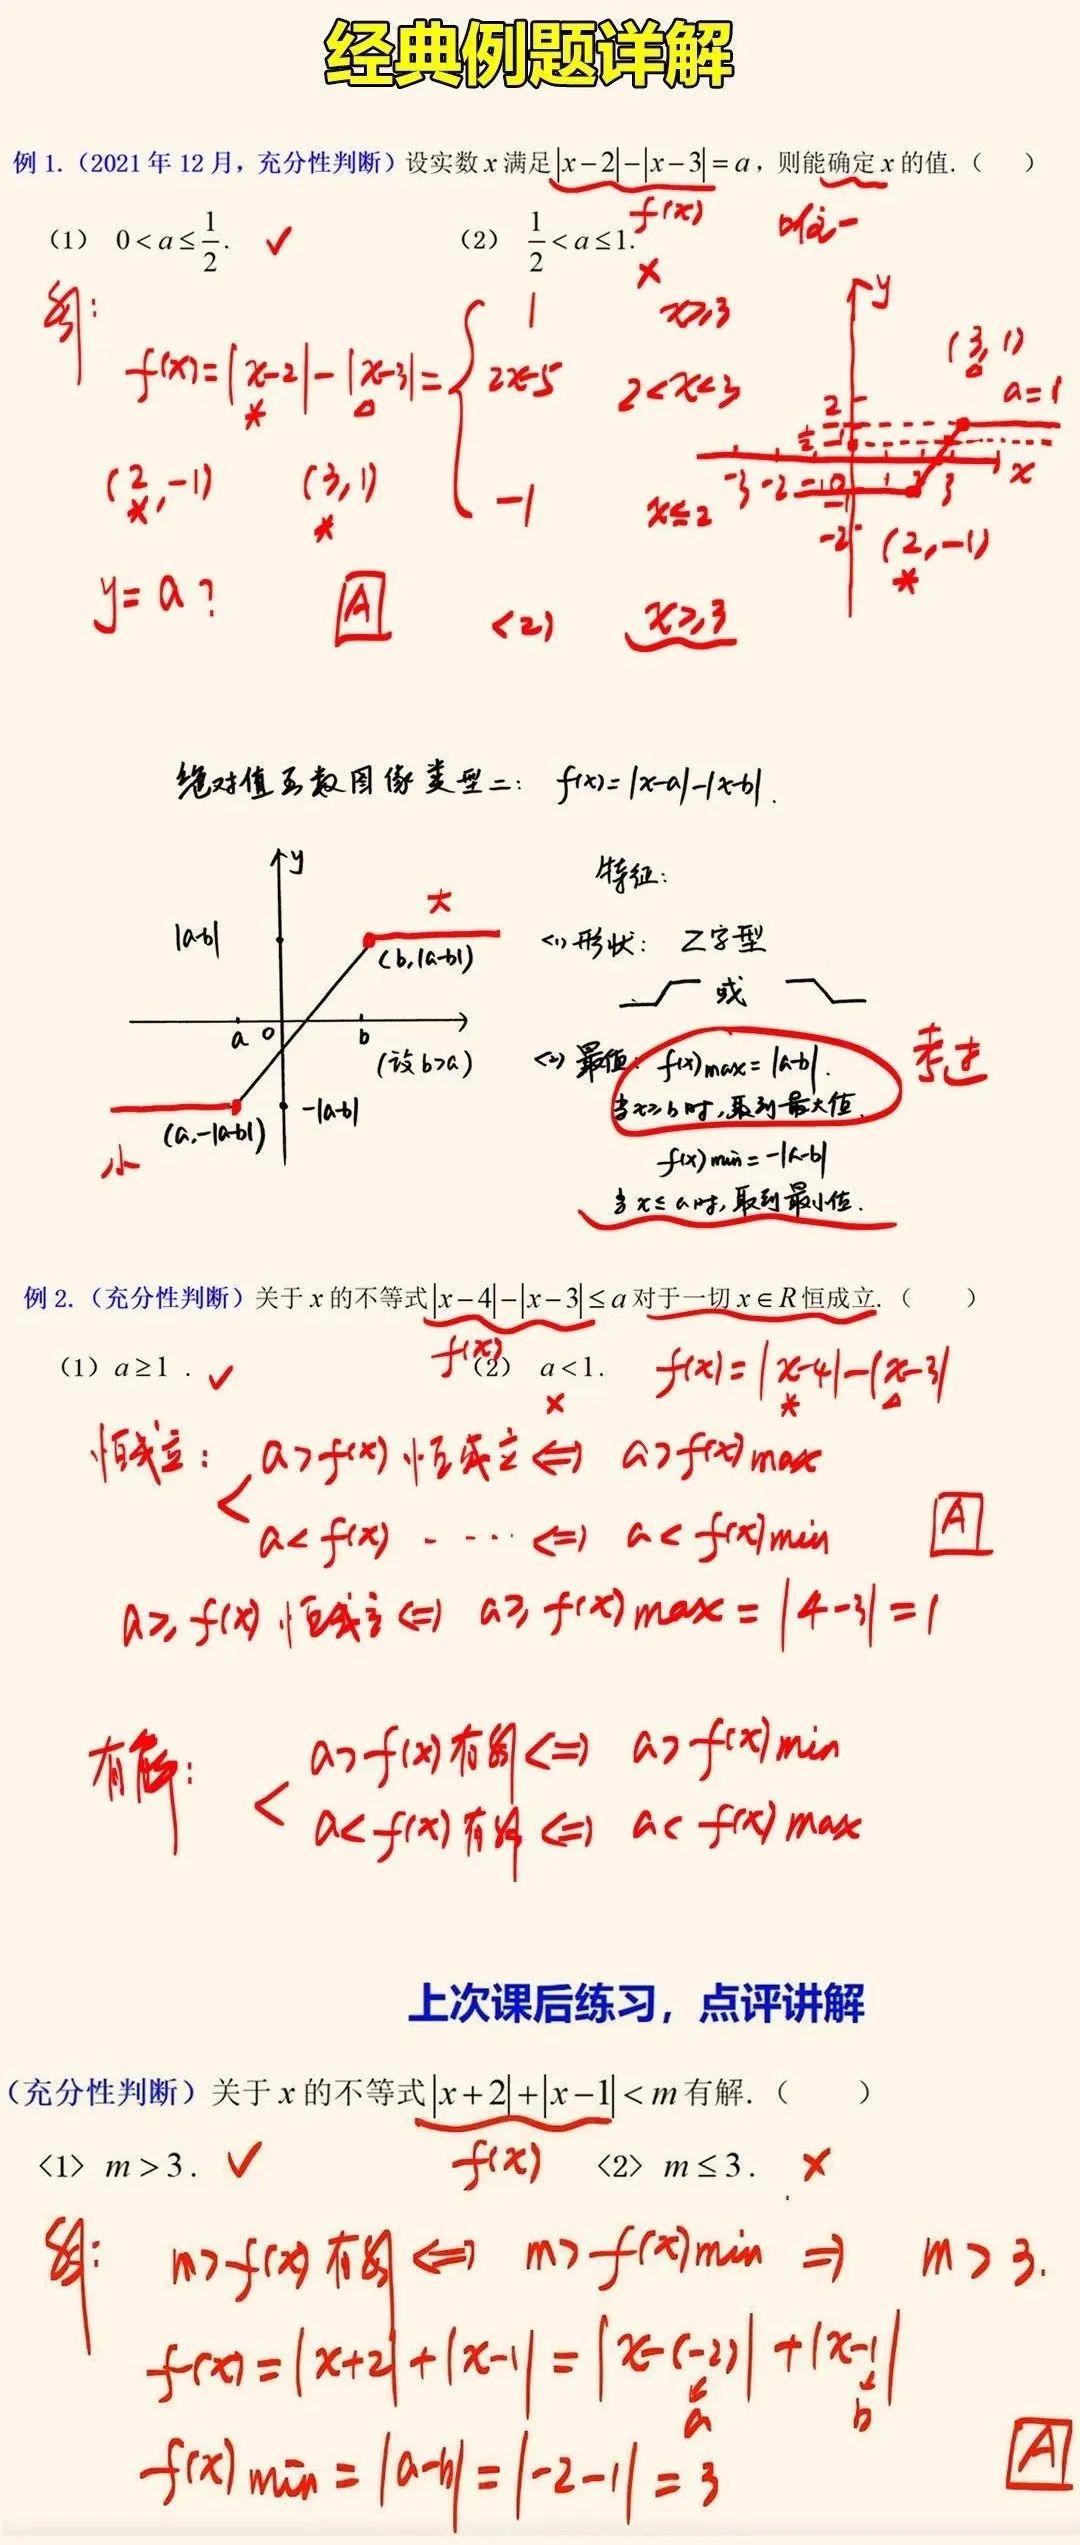 经典例题详解
例 1.（2021 年 12 月，充分性判断）设实数 x 满足 |x−2|−|x−3| = a，则能确定 x 的值.（ ）
f(x)
唯一
（1） 0 < a ≤ 1/2. ✓ （2） 1/2 < a ≤ 1. ×
解：
f(x)=|x-2|-|x-3|= { 1 x≥3
2x-5 2<x<3
-1 x≤2
(2,-1) (3,1)
y
(3,1)
a=1
2
1/2
1
-3 -2 -1 0 1 2 3 x
-1
-2 (2,-1)
y=a? A <2> x≥3
绝对值函数图像类型二： f(x)=|x-a|-|x-b|.
y
大
|a-b|
(b,|a-b|)
a 0 b
(设b>a)
-|a-b|
(a,-|a-b|)
小
特征：
<1>形状： Z字型
或
<2>最值： f(x)max=|a-b|. 考过
当x≥b时，取到最大值.
f(x)min=-|a-b|
当x≤a时，取到最小值.
例 2.（充分性判断）关于 x 的不等式 |x−4|−|x−3| ≤ a 对于一切 x∈R 恒成立.（ ）
f(x)
（1） a ≥ 1 . ✓ （2） a < 1. × f(x)=|x-4|-|x-3|
恒成立： < a>f(x) 恒成立 <=> a>f(x)max
a<f(x) - - ·· <=> a<f(x)min A
a≥f(x) 恒成立 <=> a≥f(x)max=|4-3|=1
有解： < a>f(x)有解 <=> a>f(x)min
a<f(x)有解 <=> a<f(x)max
上次课后练习，点评讲解
（充分性判断）关于 x 的不等式 |x+2|+|x−1| < m 有解.（ ）
f(x)
<1> m > 3 . ✓ <2> m ≤ 3 . ×
解： m>f(x)有解 <=> m>f(x)min => m>3.
f(x)=|x+2|+|x-1|=|x-(-2)|+|x-1|
a b
f(x)min=|a-b|=|-2-1|=3 A